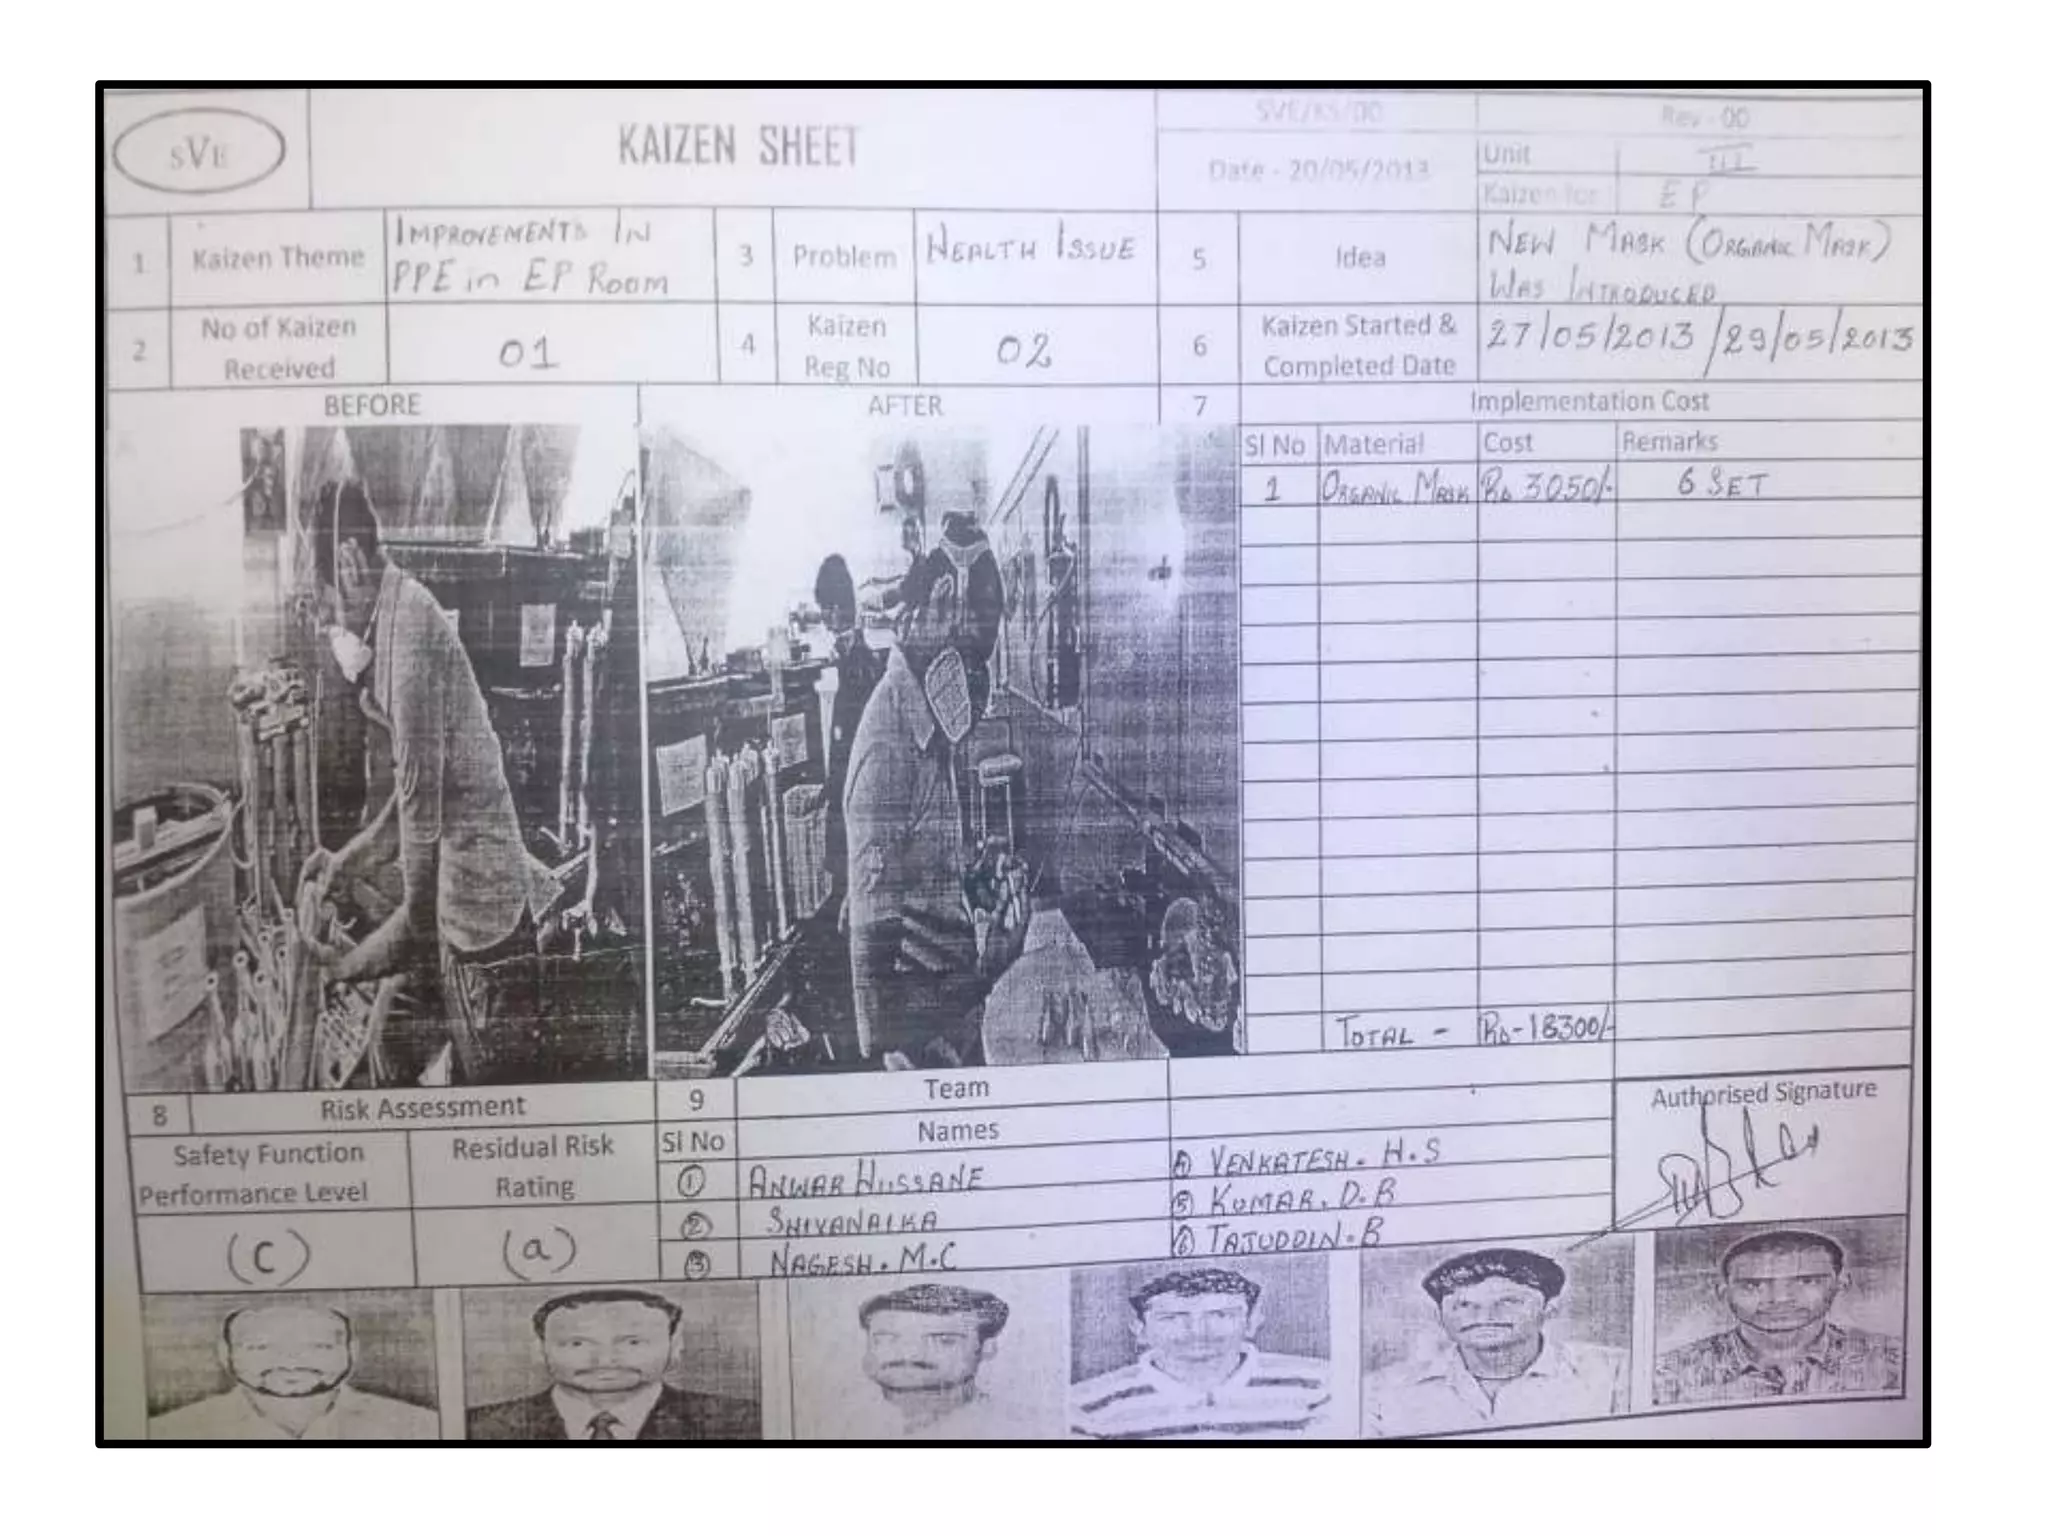 SVE
KAIZEN SHEET
SVE/KS/00
Rev - 00
Date - 20/05/2013
Unit
III
Kaizen for
EP
1
Kaizen Theme
IMPROVEMENTS IN
PPE in EP ROOM
3
Problem
HEALTH ISSUE
5
Idea
NEW MASK (ORGANIC MASK)
WAS INTRODUCED
2
No of Kaizen
Received
01
4
Kaizen
Reg No
02
6
Kaizen Started &
Completed Date
27/05/2013 /29/05/2013
BEFORE
AFTER
7
Implementation Cost
Sl No Material Cost Remarks
1 ORGANIC MASK Rs 3050/- 6 SET
TOTAL - Rs-18300/-
8
Risk Assessment
9
Team
Authorised Signature
Safety Function
Performance Level
Residual Risk
Rating
Sl No
Names
① ANWAR HUSSANE
② SHIVANAIKA
③ NAGESH. M.C
④ VENKATESH. H.S
⑤ KUMAR. D.B
⑥ TAJUDDIN.B
(c)
(a)